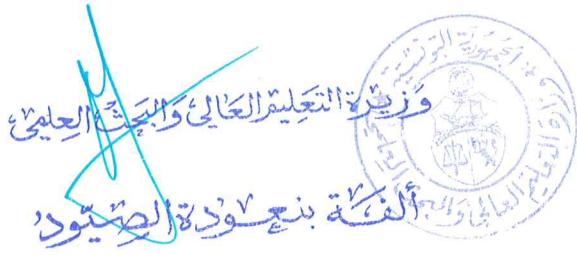 وزيرة التعليم العالي والبحث العلمي
ألفة بنعودة الصيود
الجمهورية التونسية
وزارة التعليم العالي والبحث العلمي